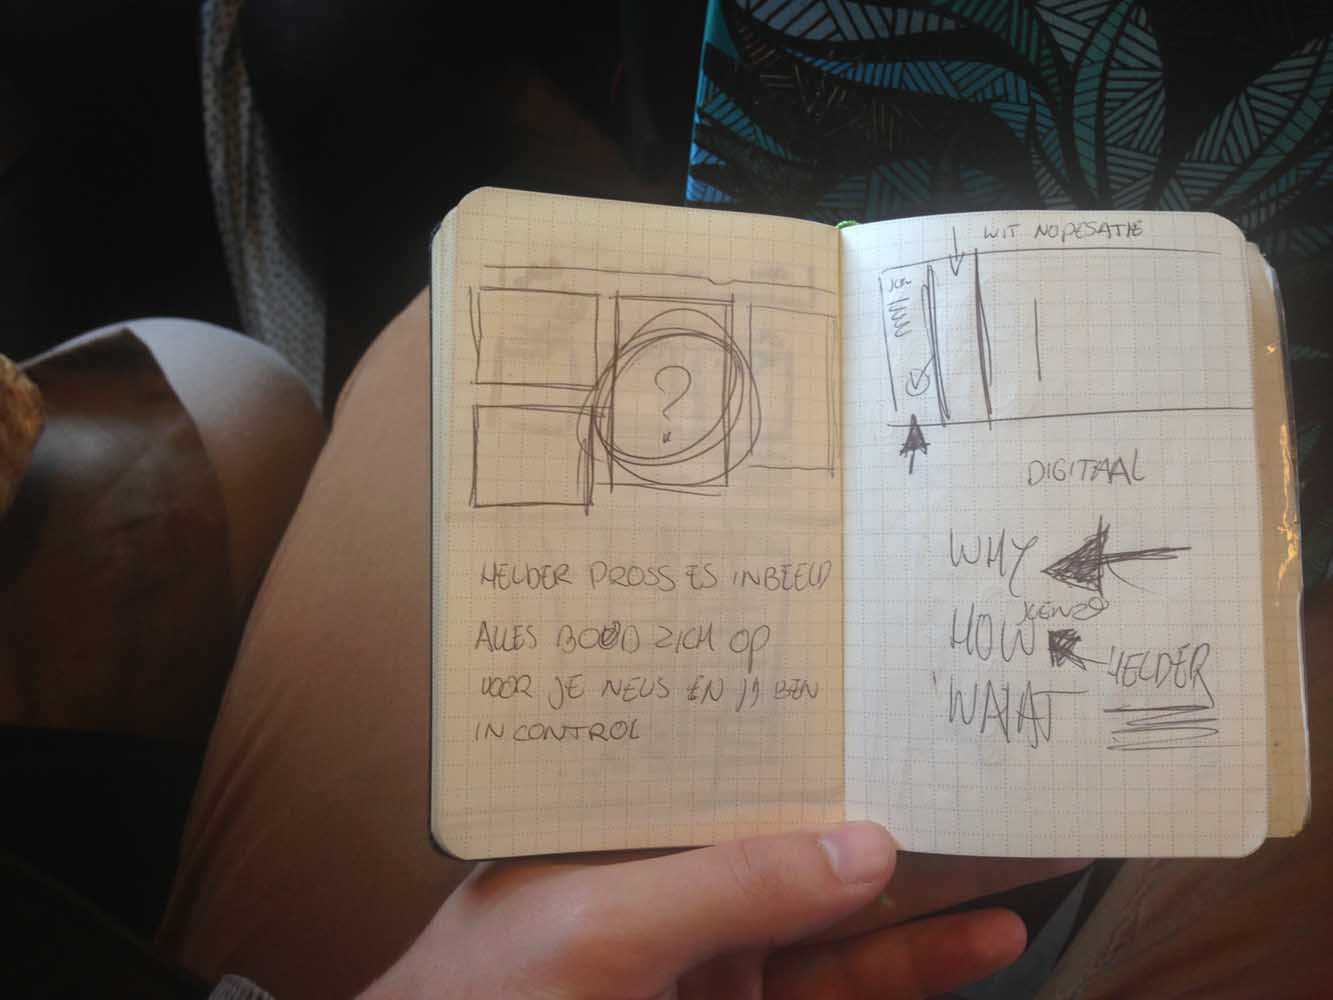 ?
HELDER PROSSES INBEELD
ALLES BOUD ZICH OP
VOOR JE NEUS EN JJ BEN
IN CONTROL
WIT NOPESATIE
DIGITAAL
WHY
HOW
HELDER
WAHAT